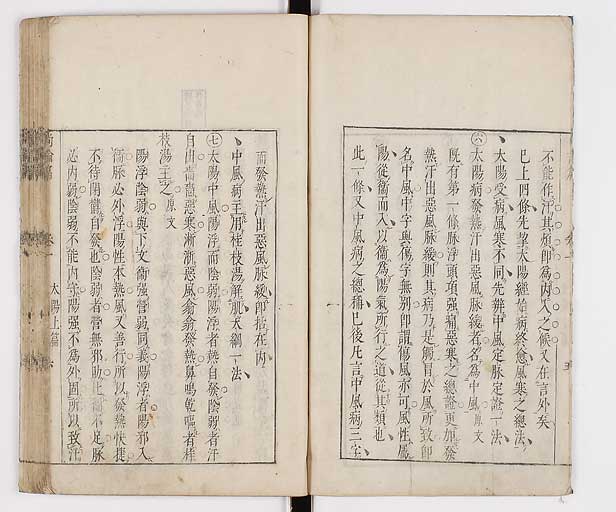 不能作汗其煩即為内入之候又在言外矣
已上四條先挈太陽經始病終愈風寒之總法
太陽受病風寒不同先辨中風定脉定證一法
六太陽病發熱汗出惡風脉緩者名為中風原文
既有第一條脉浮頭項强痛惡寒之總證更加發
熱汗出惡風脉緩則其病乃是觸冒於風所致即
名中風中字與傷字無別即謂傷風亦可風性屬
陽從衞而入以衞為陽氣所行之道從其類也
此一條又中風病之總稱已後凡言中風病三字
而發熱汗出惡風脉緩即括在内
中風病主用桂枝湯解肌大綱一法
七太陽中風陽浮而陰弱陽浮者熱自發陰弱者汗
自出嗇嗇惡寒淅淅惡風翕翕發熱鼻鳴乾嘔者桂
枝湯主之原文
陽浮陰弱與下文衞强營弱同義陽浮者陽邪入
衞脉必外浮陽性本熱風又善行所以發熱快捷
不待閉鬱自發也陰弱者營無邪助比衞不足脉
必内弱陰弱不能内守陽强不為外固所以致汗
太陽上篇 六